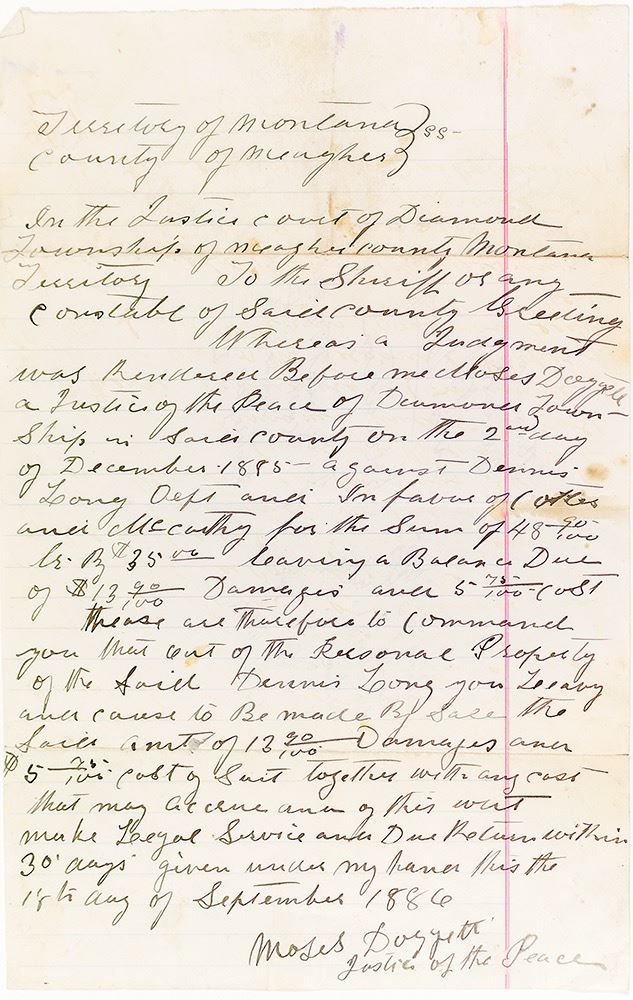 Territory of Montana } ss-
County of Meagher }
In the Justice court of Diamond
Township of Meagher county Montana
Territory To the Sheriff or any
Constable of Said county Greeting
Whereas a Judgment
was Rendered Before me Moses Doggett
a Justice of the Peace of Diamond Town-
Ship in Said county on the 2nd day
of December 1885 - against Dennis
Long Deft and In favor of
and McCarthy for the Sum of 48 90/100
Cr. By $35 00 leaving a Balance Due
of $13 90/100 Damages and 5 75/100 cost
these are therefore to Command
you that out of the Personal Property
of the Said Dennis Long you Leavy
and cause to Be made By Sale the
Said amt of 13 90/100 Damages and
$5 75/100 cost of Suit together with any cost
that may accrue and of this writ
make Legal Service and Due Return within
30 days given under my hand this the
day of September 1886
Moses Doggett
Justice of the Peace